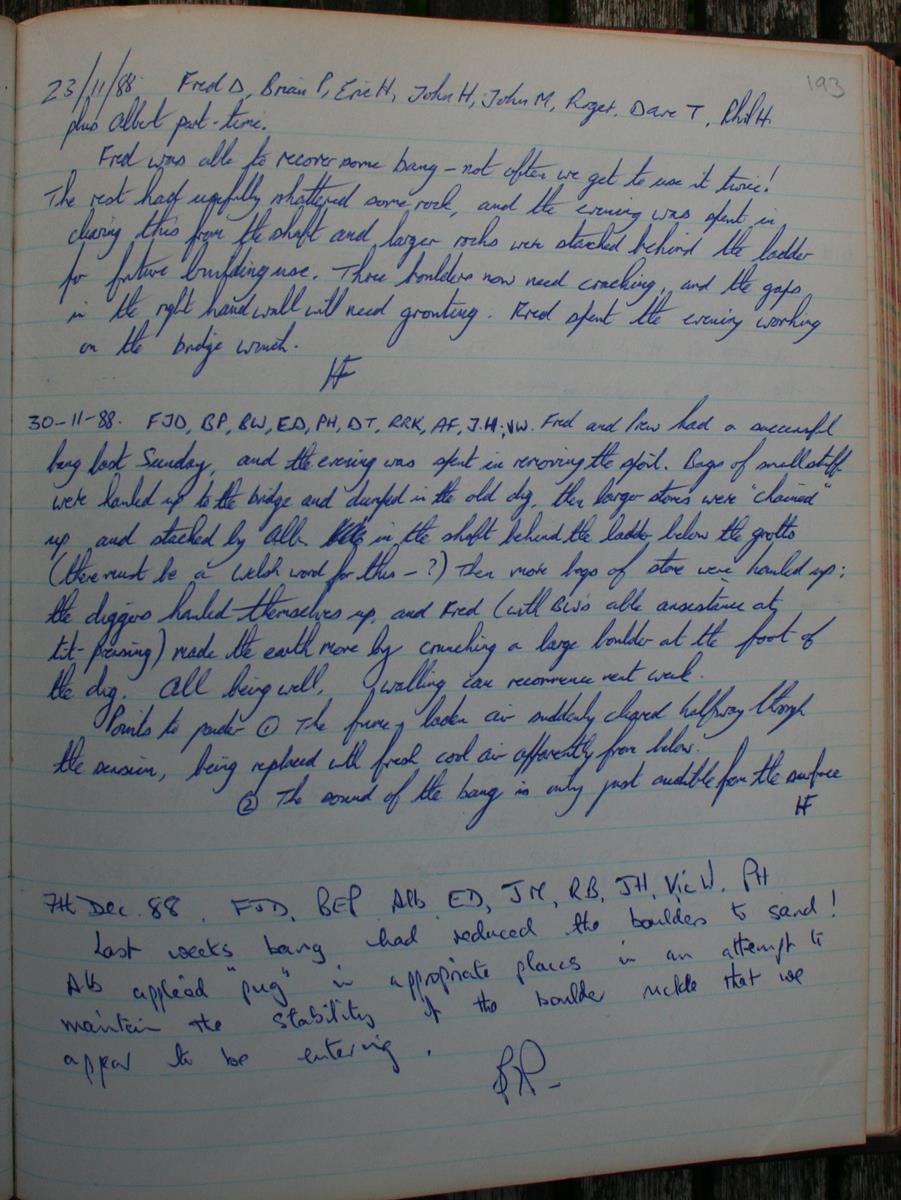 193
23/11/88. Fred D, Brian P, Eric H, John H, John M, Roger, Dave T, Phil H.
plus Albert part-time.
Fred was able to recover some bang – not often we get to use it twice!
The rest had usefully shattered some rock, and the evening was spent in
clearing this from the shaft and larger rocks were stacked behind the ladder
for future building use. Three boulders now need cracking, and the gaps
in the right hand wall will need grouting. Fred spent the evening working
on the bridge winch.
30-11-88. FJD, BP, BW, ED, PH, DT, RRK, AF, J.H, VW. Fred and had a successful
bang last Sunday, and the evening was spent in removing the spoil. Bags of small stuff
were hauled up to the bridge and dumped in the old dig, then larger stones were "chained"
up and stacked by Alb. in the shaft behind the ladder below the grotto
(there must be a Welsh word for this – ?) Then more bags of stone were hauled up;
the diggers hauled themselves up, and Fred (with BW's able assistance at
tit-pressing) made the earth move by crunching a large boulder at the foot of
the dig. All being well, walling can recommence next week.
Points to ponder ① The fume laden air suddenly cleared halfway through
the session, being replaced with fresh cool air apparently from below.
② The sound of the bang is only just audible from the surface
7th Dec. 88. FJD, BEP Alb ED, JM, RB, JH, Vic W. PH
Last weeks bang had reduced the boulders to sand!
Alb applied "pug" in appropriate places in an attempt to
maintain the stability of the boulder ruckle that we
appear to be entering.